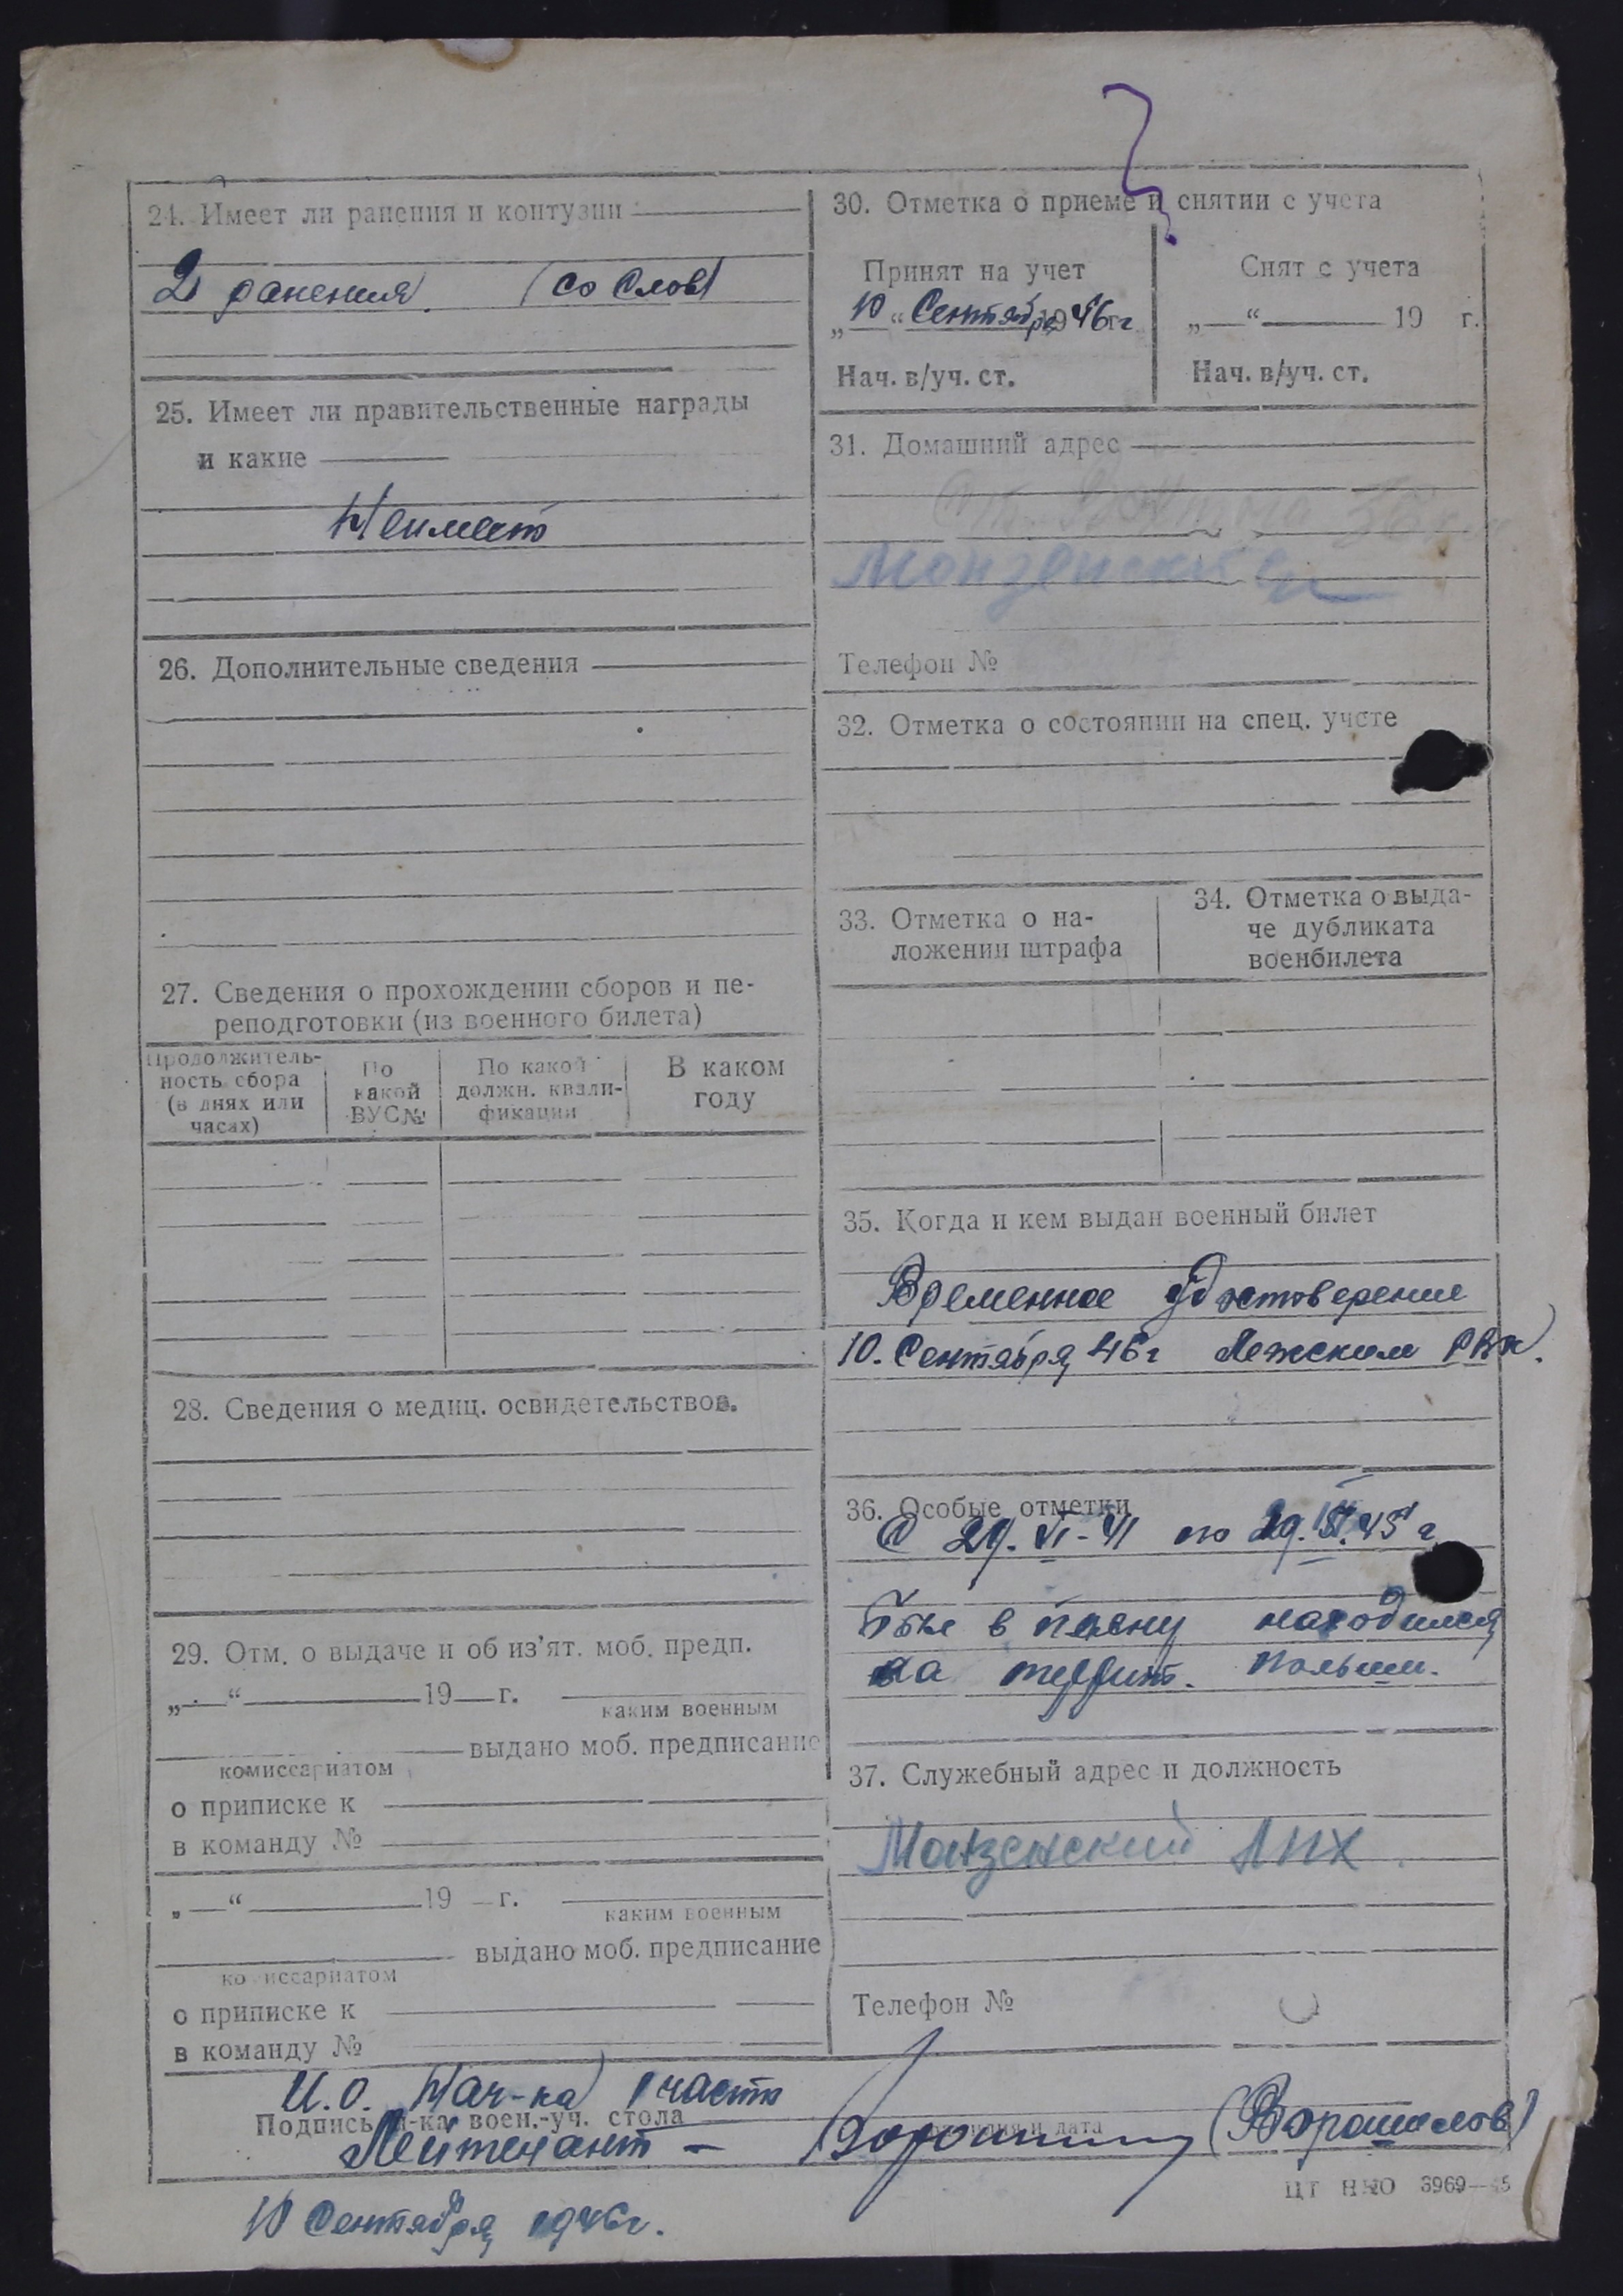 24. Имеет ли ранения и контузии
2 ранения. (со слов)
25. Имеет ли правительственные награды
и какие
Неимеет
26. Дополнительные сведения
27. Сведения о прохождении сборов и пе-
реподготовки (из военного билета)
Продолжитель-
ность сбора
(в днях или
часах)
По
какой
ВУС №
По какой
должн. квали-
фикации
В каком
году
28. Сведения о медиц. освидетельствов.
29. Отм. о выдаче и об из’ят. моб. предп.
„ “ 19 г.
каким военным
выдано моб. предписание
комиссариатом
о приписке к
в команду №
„ “ 19 г.
каким военным
выдано моб. предписание
комиссариатом
о приписке к
в команду №
30. Отметка о приеме и снятии с учета
Принят на учет
„10“ Сентября 1946 г.
Нач. в/уч. ст.
Снят с учета
„ “ 19 г.
Нач. в/уч. ст.
31. Домашний адрес
Монзенский
Телефон №
32. Отметка о состоянии на спец. учете
33. Отметка о на-
ложении штрафа
34. Отметка о выда-
че дубликата
военбилета
35. Когда и кем выдан военный билет
Временное удостоверение
10. Сентября 46 г Лежским РВК.
36. Особые отметки
С 29. VI-41 по 29. 45 г
в плену находился
на террит. Польши.
37. Служебный адрес и должность
Монзенский ЛПХ.
Телефон №
И.О. Нач-ка 1 части
Подпись н-ка воен.-уч. стола
и дата
Лейтенант – (Ворошилов)
ЦТ НКО 3969—45
10 Сентября 1946г.